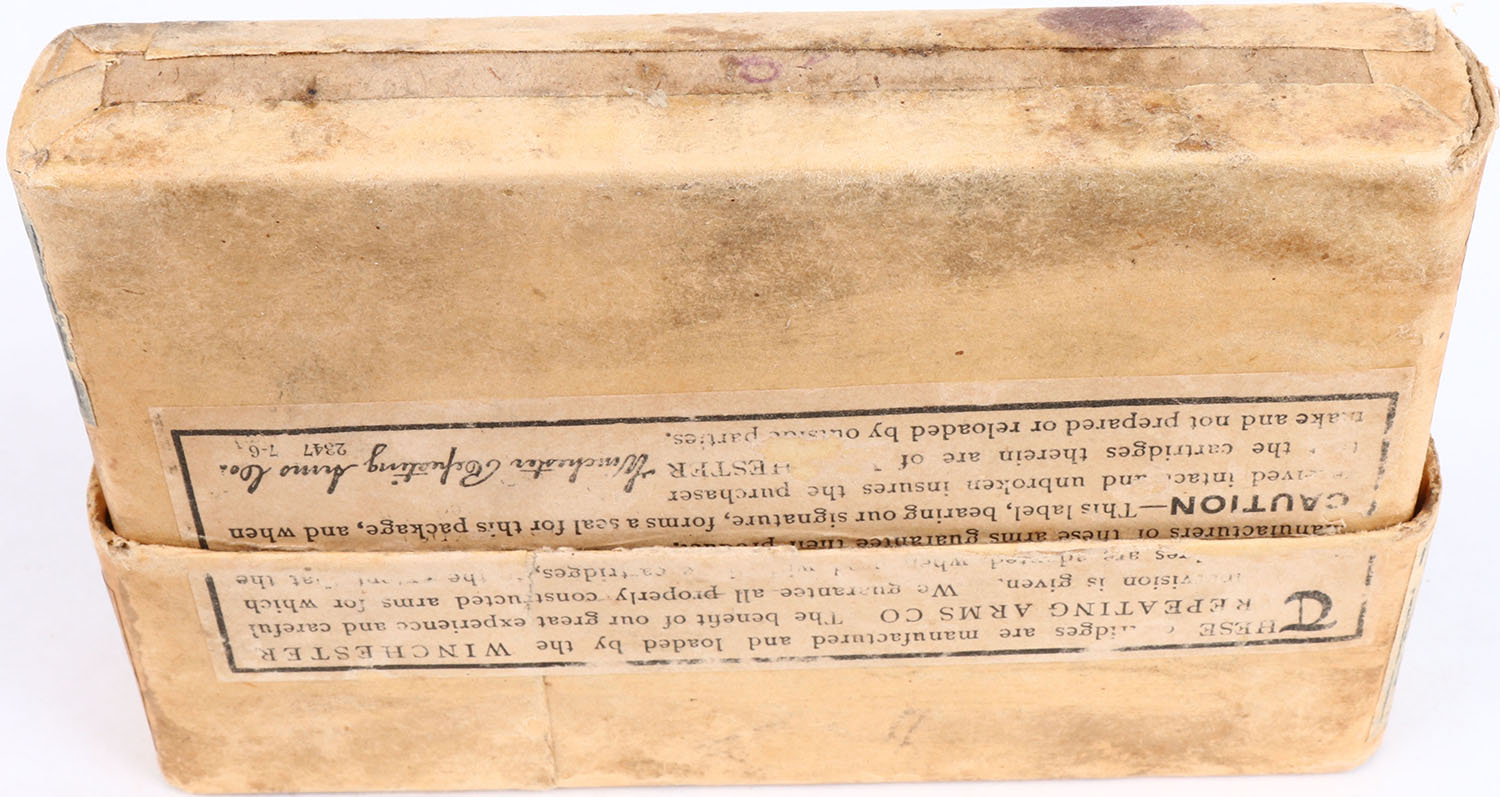 THESE idges are manufactured and loaded by the WINCHESTER
REPEATING ARMS CO The benefit of our great experience and careful
is given. We guarantee all properly constructed arms which
are adapted
manufacturers of these arms guarantee their
CAUTION—This label, bearing our signature, forms a seal for this package, and when
intact and unbroken insures the purchaser
the cartridges therein are of HESTER
make and not prepared or reloaded by outside parties.
Winchester Repeating Arms Co.
2347 7-6